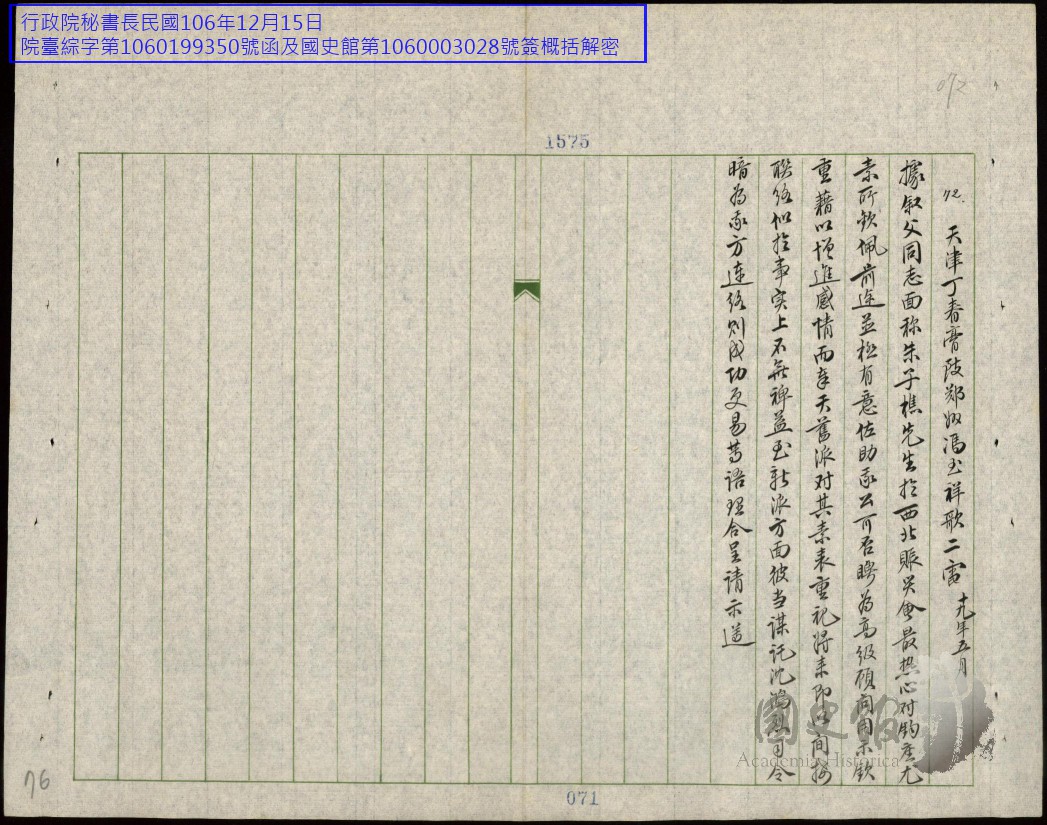 行政院秘書長民國106年12月15日
院臺綜字第1060199350號函及國史館第1060003028號簽概括解密
072
1575
72. 天津丁春膏陂鄭 馮玉祥歌二電 十九年五月
據叙父同志面称朱子樵先生於西北賑災會最热心对鈞座尤
素所欽佩前途並極有意佐助我公可否聘為高级顾問用示欽
重藉以增進感情而奉天舊派对其素表重视将来即以间接
联络似於事实上不無裨益至新派方面彼当谋託沈鴻烈司令
暗為我方連络则成功更易等语理合呈请示遵
國史館
Academia Historica
76
071